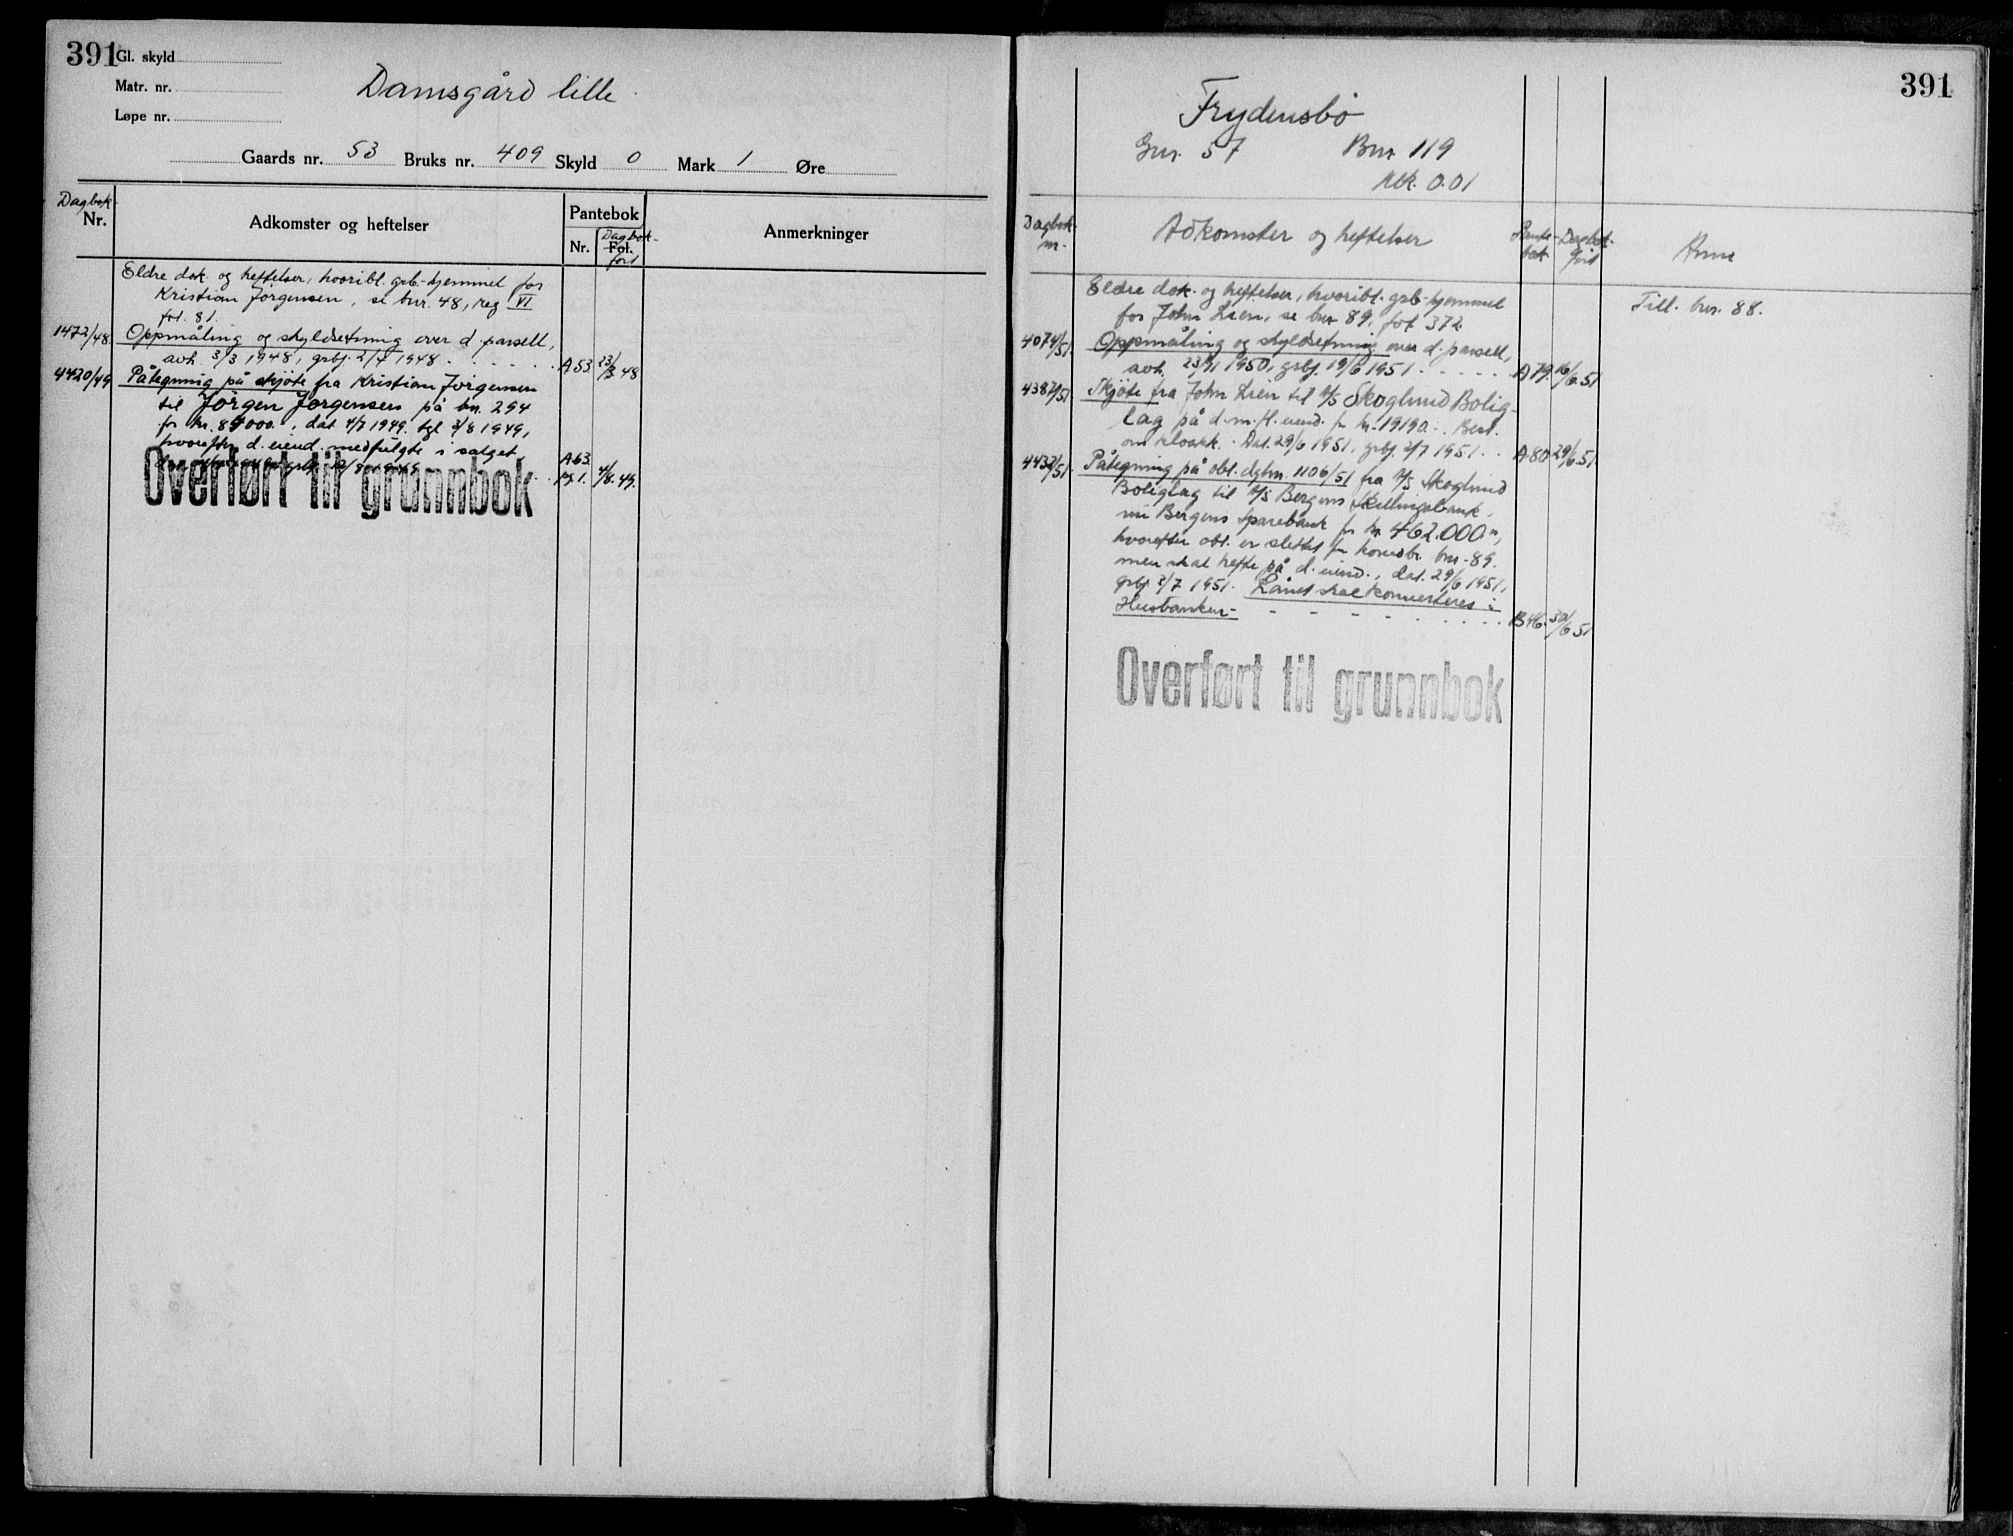 391
Gl. skyld
Matr. nr.
Løpe nr.
Damsgård lille
Gaards nr. 53 Bruks nr. 409 Skyld 0 Mark 1 Øre
Dagbok-
Nr.
Adkomster og heftelser
Pantebok
Nr.
Fol.
Dagbok-
ført
Anmerkninger
Eldre dok. og heftelser, hvoribl. grb.-hjemmel for
Kristian Jørgensen, se bnr. 48, reg VI
fol. 81.
1472/48 Oppmåling og skyldsetning over d parsell,
avh. 3/3 1948, grbj. 2/4 1948 A53 23/3 48
4420/49 Påtegning på skjøte fra Kristian Jørgensen
til Jørgen Jørgensen på bnr. 294
for kr. 89000.-, dat. 4/7 1949. tgl. 3/8 1949,
hvorefter d. eiend. medfulgte i salget.
A63. 4/8. 49.
Overført til grunnbok
391
Frydensbø
Gnr. 57 Bnr 119
Mk. 0.01
Dagbok
nr.
Adkomster og heftelser
Pante-
bok
Dagbok-
ført
Anm
Eldre dok. og heftelser, hvoribl. grb-hjemmel
for John Lien, se bnr 89, fol 372.
Till. bnr. 88.
4074/51 Oppmåling og skyldsetning over d. parsell,
avh. 23/11 1950, grbj. 19/6 1951. A79 16/6 51
4387/51 Skjøte fra John Lien til A/S Skoglund Bolig-
lag på d. m. fl. eiend. for kr. 19190.-. Best.
om kloakk. Dat. 29/6 1951, grbj. 2/7 1951. A80 29/6 51.
4432/51 Påtegning på obl. dgbnr. 1106/51 fra A/S Skoglund
Boliglag til A/S Bergens Skillingsbank,
nu Bergens Sparebank for kr 462.000.-,
hvorefter obl. er slettet for hovedbr. bnr. 89.
men skal hefte på d. eiend., dat. 29/6 1951,
grbj. 2/7 1951. Lånet skal konverteres i
Husbanken - B46. 30/6 51
Overført til grunnbok